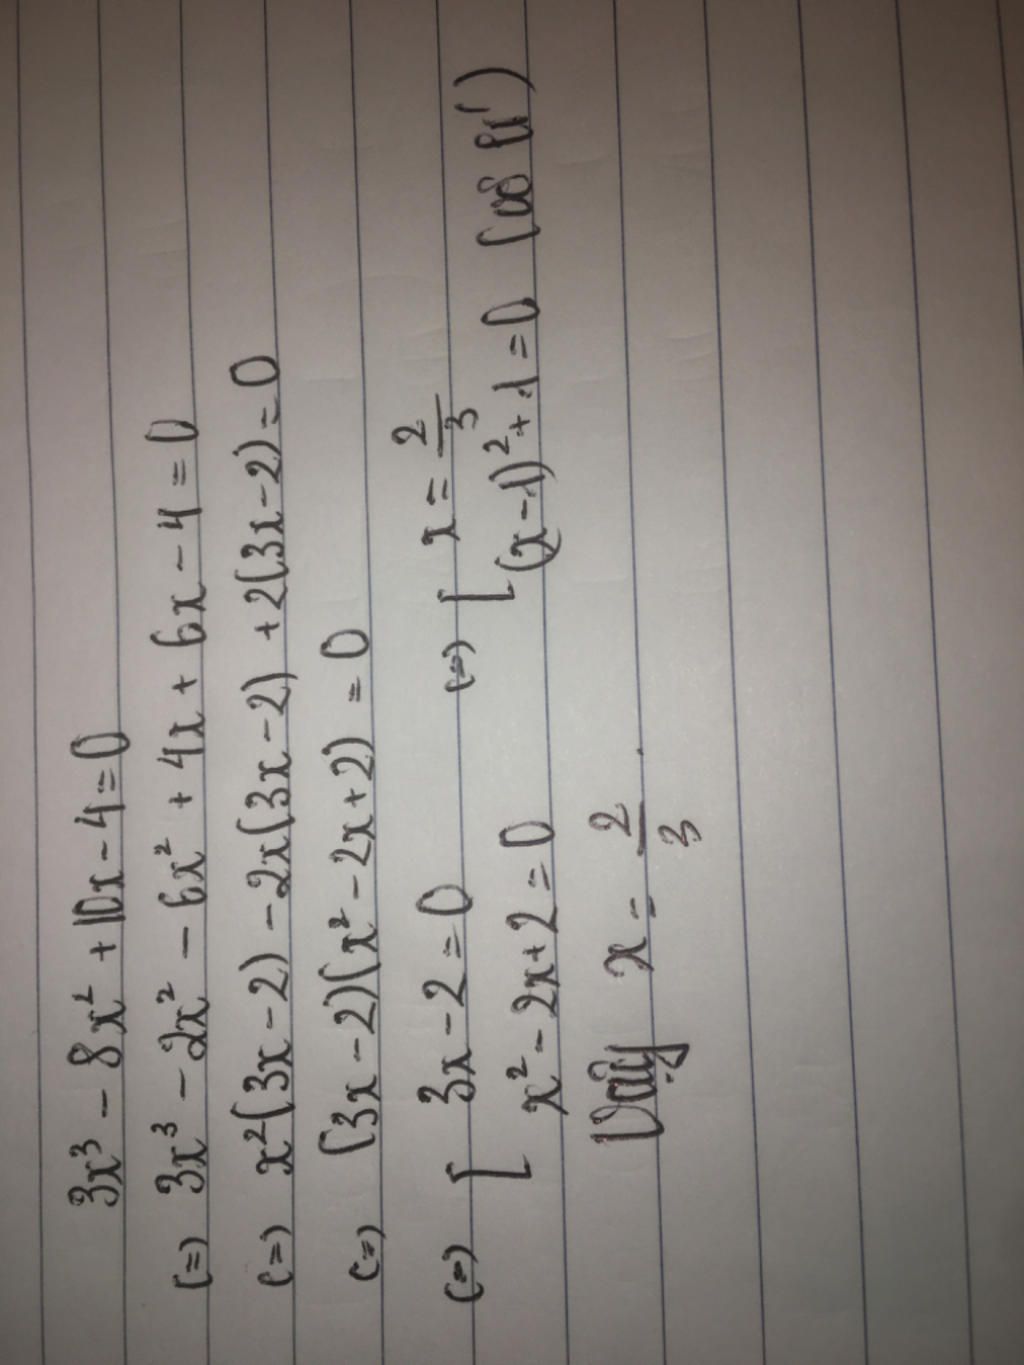 3x³ - 8x² + 10x - 4 = 0
(=) 3x³ - 2x² - 6x² + 4x + 6x - 4 = 0
(=) x²(3x - 2) - 2x(3x - 2) + 2(3x - 2) = 0
(=) (3x - 2)(x² - 2x + 2) = 0
(=) [ 3x - 2 = 0 (=) [ x = 2/3
x² - 2x + 2 = 0 (x - 1)² + 1 = 0 (vô lí)
Vậy x = 2/3.